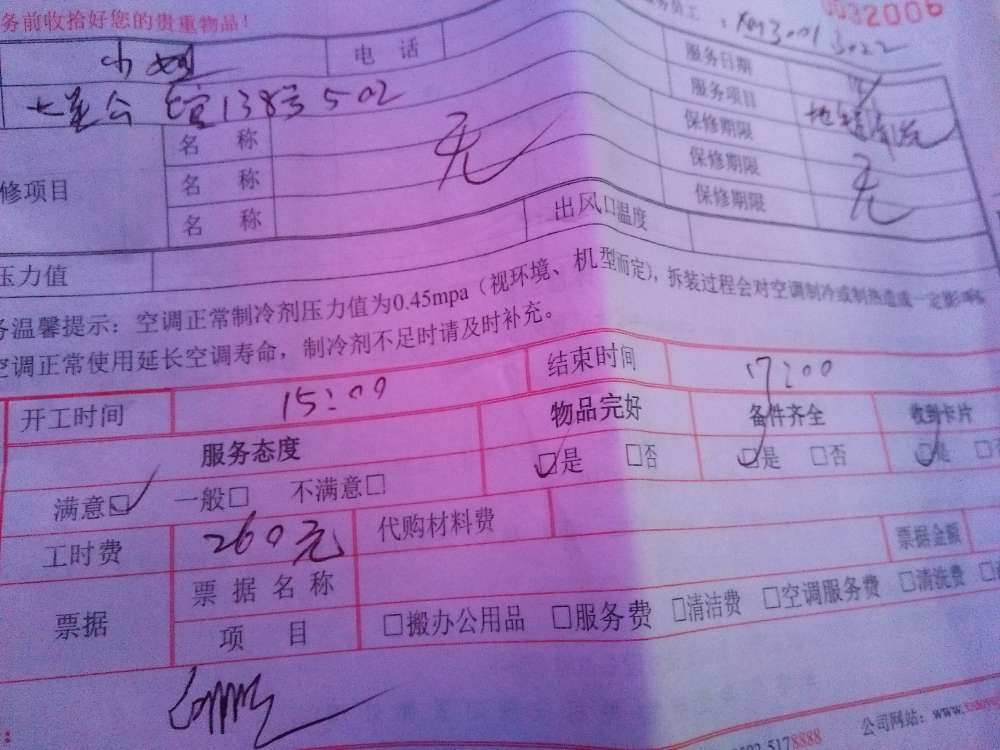 务前收拾好您的贵重物品！
务员工：
0032006
电 话
服务日期
138号502
服务项目
名 称 无 保修期限
修项目 名 称 保修期限 无
名 称 保修期限
压力值 出风口温度
务温馨提示：空调正常制冷剂压力值为0.45mpa（视环境、机型而定），拆装过程会对空调制冷或制热造成一定影响
空调正常使用延长空调寿命，制冷剂不足时请及时补充。
开工时间 15:00 结束时间 17:00
服务态度 物品完好 备件齐全 收到卡片
满意□ 一般□ 不满意□ □是 □否 □是 □否 □是
工时费 260元 代购材料费
票据 票据名称 票据金额
项 目 □搬办公用品 □服务费 □清洁费 □空调服务费 □清洗费
5178888 公司网站：www.